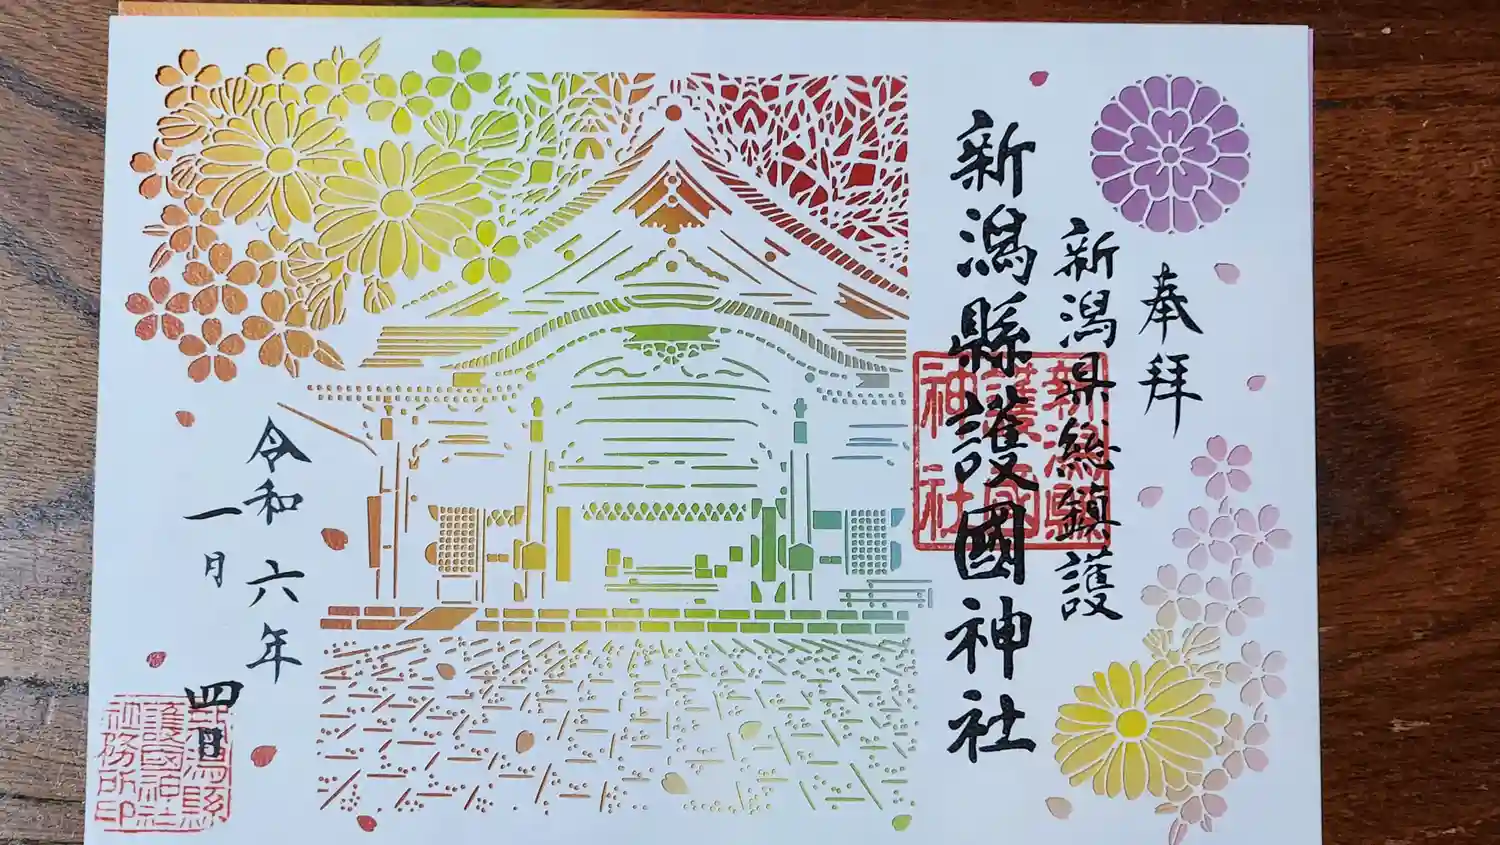 奉拝
新潟県総鎮護
新潟縣護國神社
新潟縣
護國
神社
令和六年
一月四日
新潟縣
護國神社
社務所印